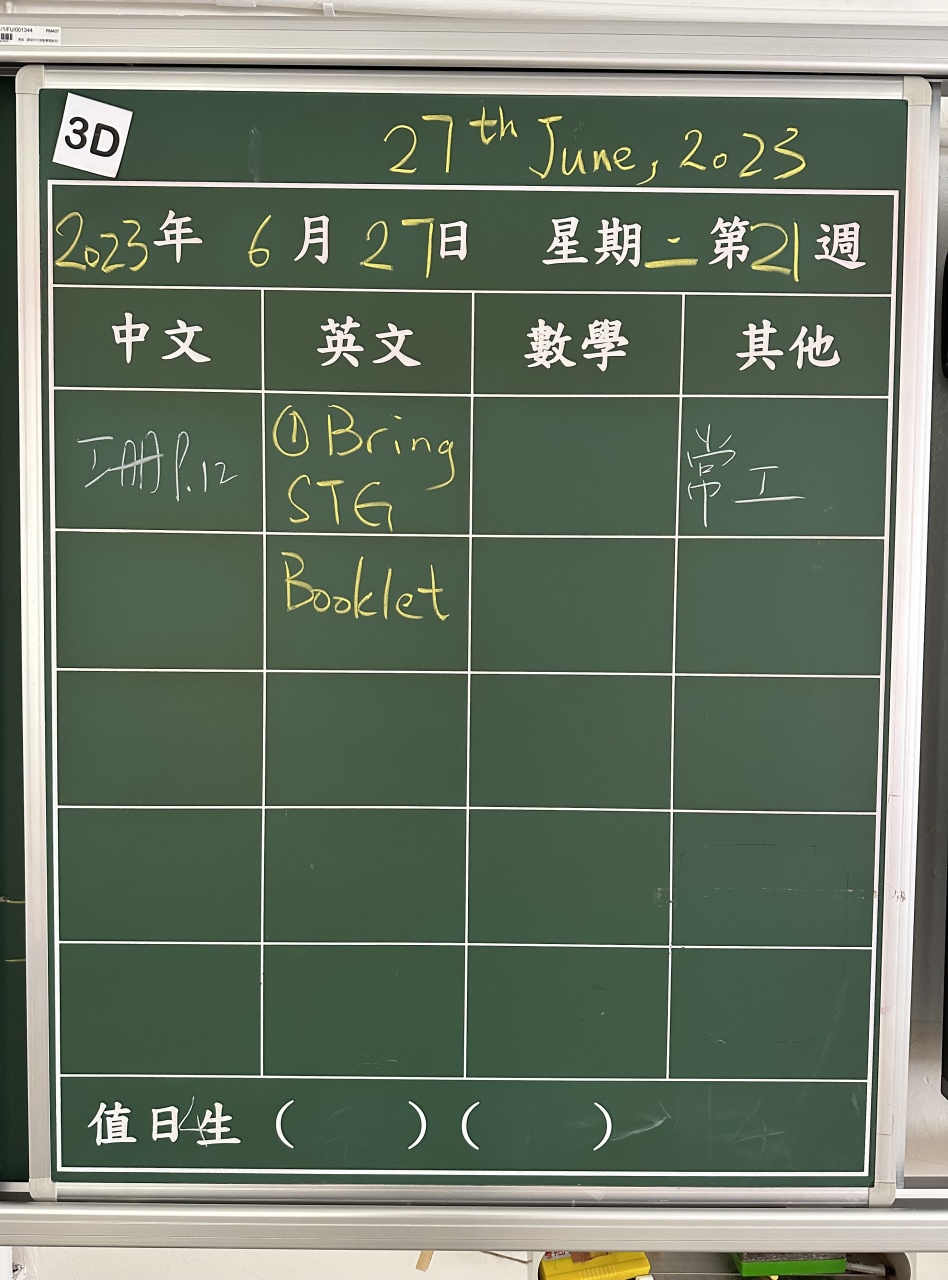 /1/FU/001344 RM407
3D
27th June, 2023
2023年 6月27日 星期二第21週
中文 英文 數學 其他
工冊P.12
① Bring
STG
Booklet
常工
值日生 ( ) ( )